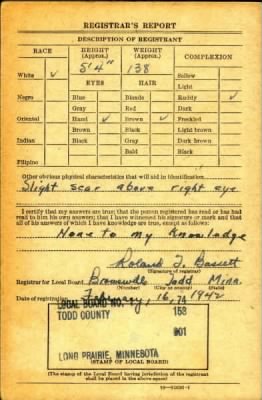 REGISTRAR'S REPORT
DESCRIPTION OF REGISTRANT
RACE HEIGHT (Approx.) WEIGHT (Approx.) COMPLEXION
5'4" 138
White ✓ EYES HAIR Sallow
Light
Negro Blue Blonde Ruddy ✓
Gray Red Dark
Oriental Hazel ✓ Brown ✓ Freckled
Brown Black Light brown
Indian Black Gray Dark brown
Bald Black
Filipino
Other obvious physical characteristics that will aid in identification
Slight scar above right eye
I certify that my answers are true; that the person registered has read or has had
read to him his own answers; that I have witnessed his signature or mark and that
all of his answers of which I have knowledge are true, except as follows:
None to my knowledge
Roland T. Bassett
(Signature of registrar)
Registrar for Local Board Todd Minn.
(Number) (City or county) (State)
Date of registration 16, 1942
LOCAL BOARD NO. 74
TODD COUNTY 153
001
LONG PRAIRIE, MINNESOTA
(STAMP OF LOCAL BOARD)
(The stamp of the Local Board having jurisdiction of the registrant
shall be placed in the above space.)